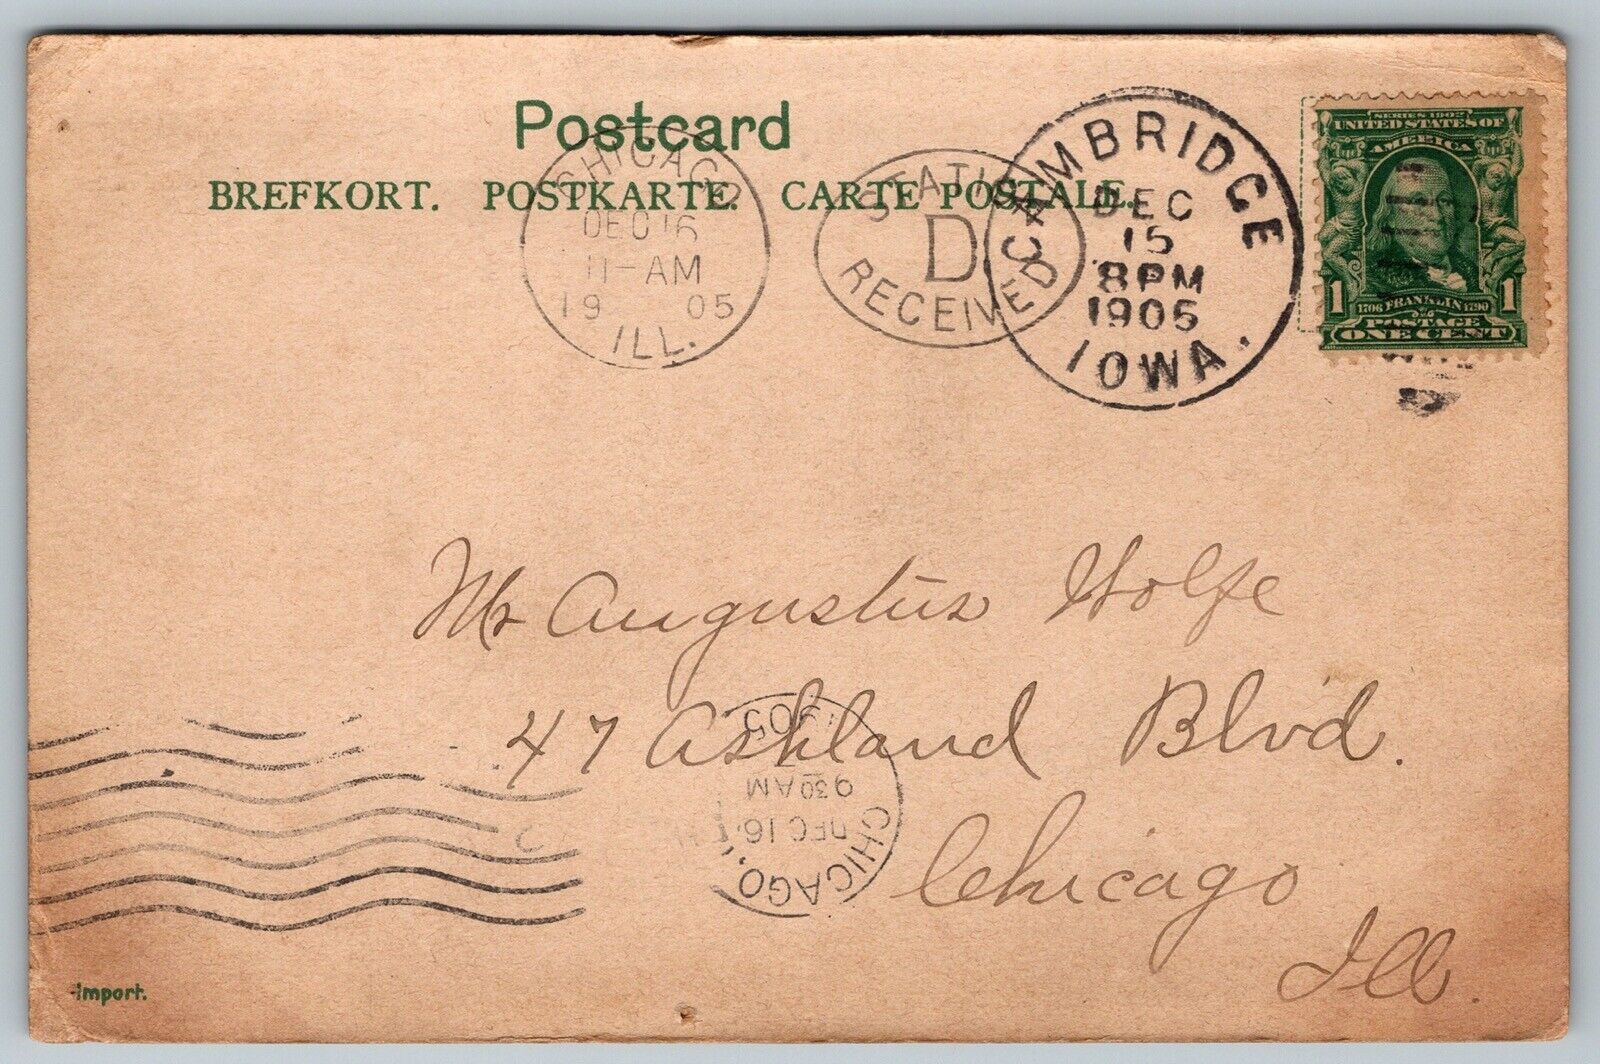 Postcard
BREFKORT. POSTKARTE. CARTE POSTALE.
CHICAGO
DEC 16
11-AM
19 05
ILL.
D
RECEIVED
CAMBRIDGE
DEC
15
8 PM
1905
IOWA.
SERIES 1902
UNITED STATES OF
AMERICA
1 1
1706 FRANKLIN 1790
POSTAGE
ONE CENT
Mr Augustus Wolfe
47 Ashland Blvd.
Chicago
Ill.
CHICAGO,
DEC 16
9 30 AM
1905
import.